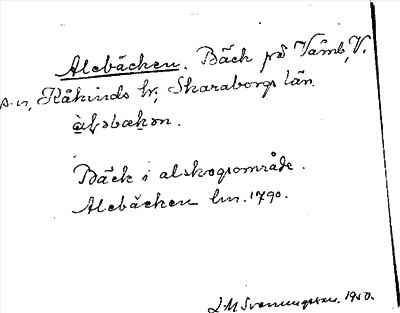 Alebäcken. Bäck på Våmb, V.
s-n, Kåkinds hr, Skaraborgs län.
àləbækən.
Bäck i alskogsområde.
Alebäcken lm. 1790.
J. M. Svenungsson. 1950.